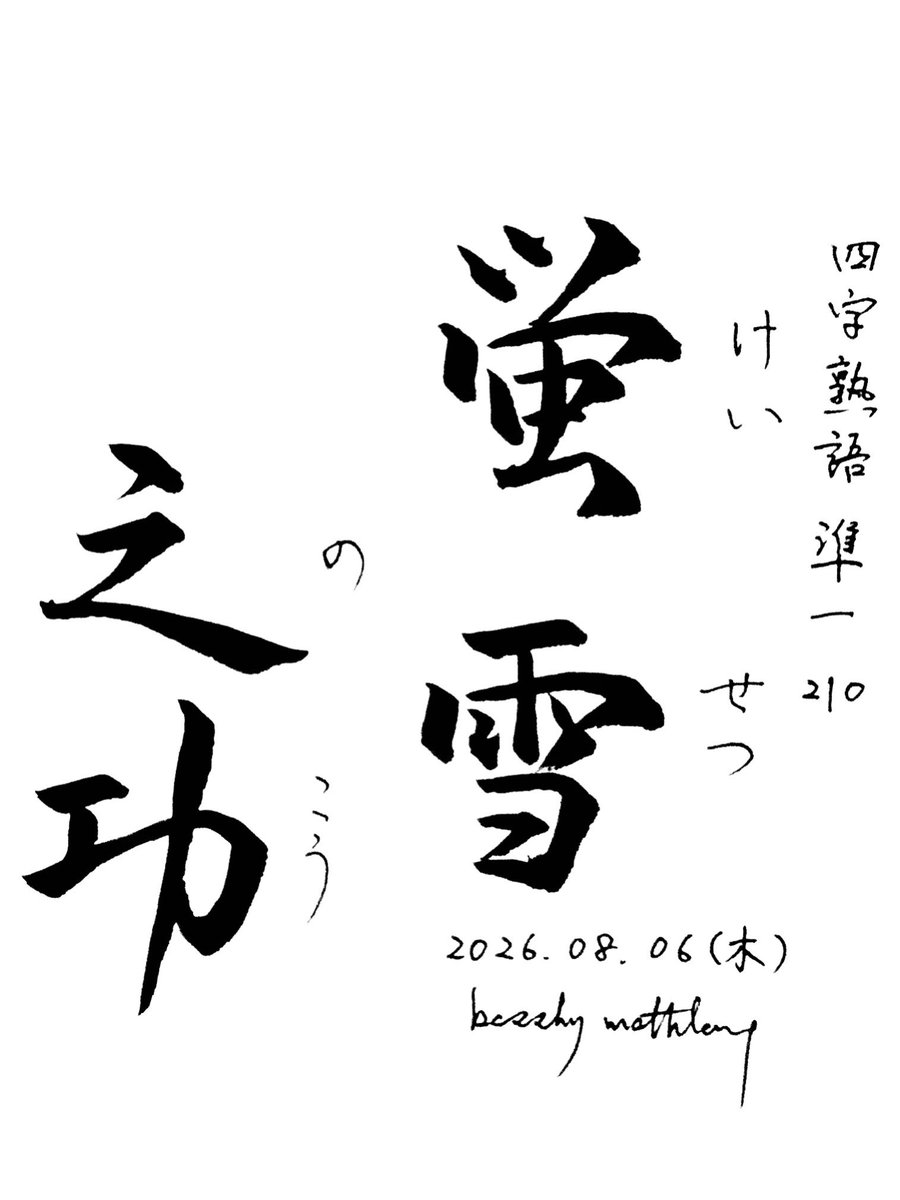 四字熟語 準一 210
けい せつ
蛍雪
の こう
之功
2026.08.06(木)